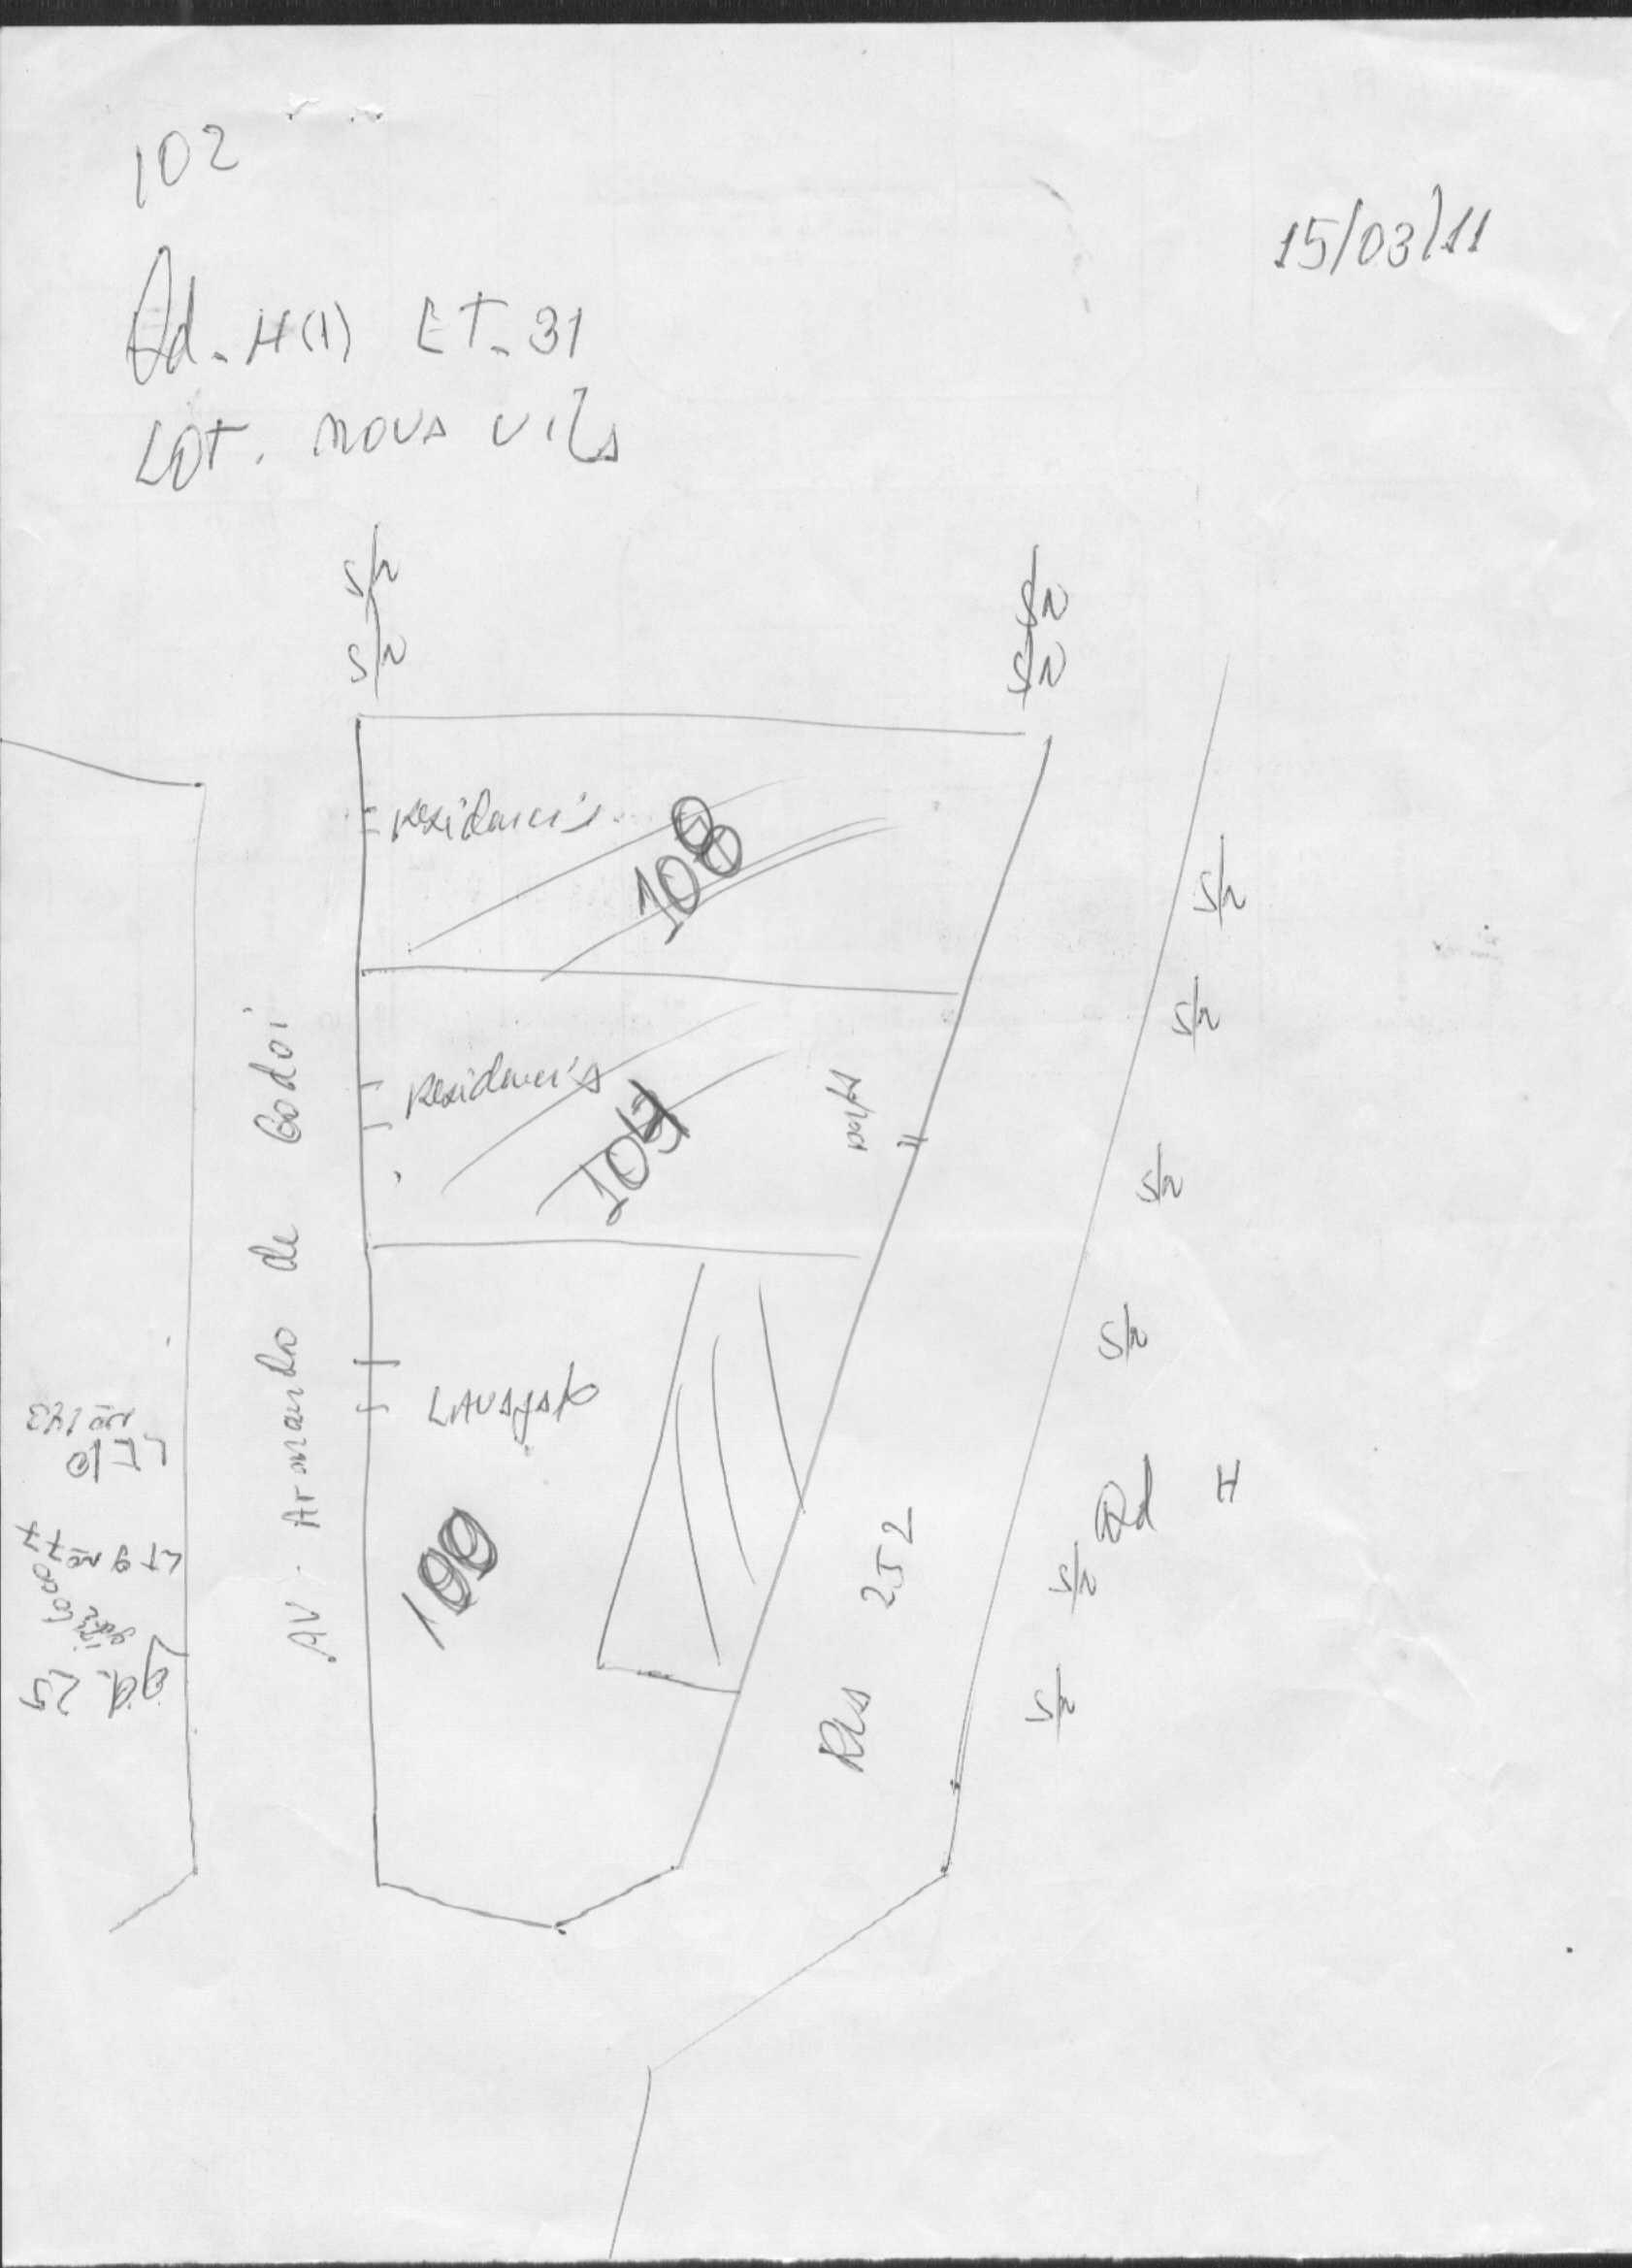 102
15/03/11
Qd. H(1) ET. 31
LOT. nova vila
S/N
S/N
S/N
S/N
residencia
108
residencia
porta
LAVAJATO
100
AV. Armando de Godoi
Rua 252
S/N
S/N
S/N
S/N
Qd H
S/N
S/N
Qd. 25
LT 9 nº 77
LT 10
nº 143